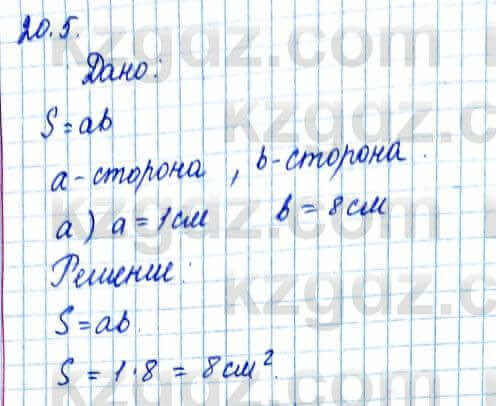 20.5.
Дано:
S = ab
a - сторона , b - сторона .
а) a = 1 см b = 8 см
Решение:
S = ab.
S = 1 · 8 = 8 см².
kzgdz.com
kzgdz.com
kzgdz.com